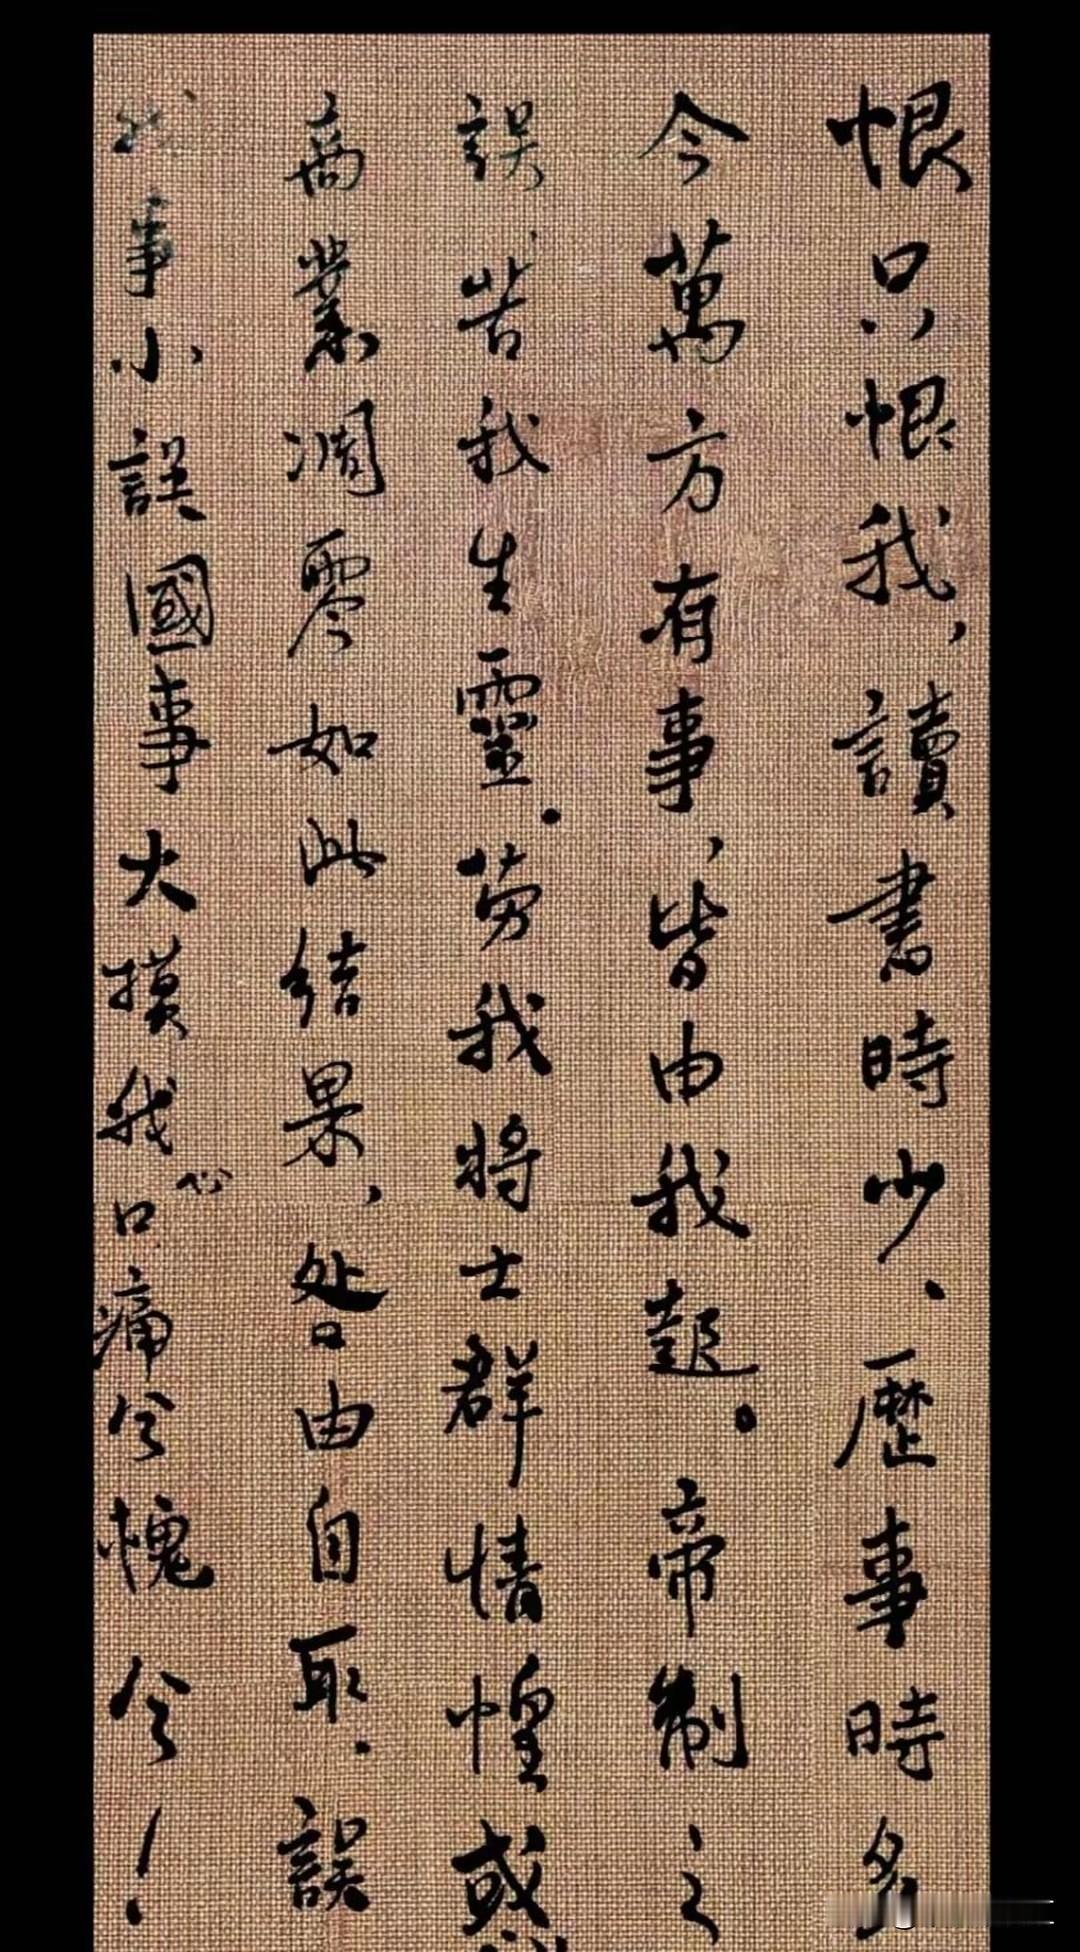 恨只恨我、讀書時少、歷事時多
今萬方有事、皆由我起。帝制之
誤苦我生靈。勞我將士群情惶惑
商業凋零如此結果、咎由自取、誤
我事小誤國事大摸我心口痛兮愧兮！